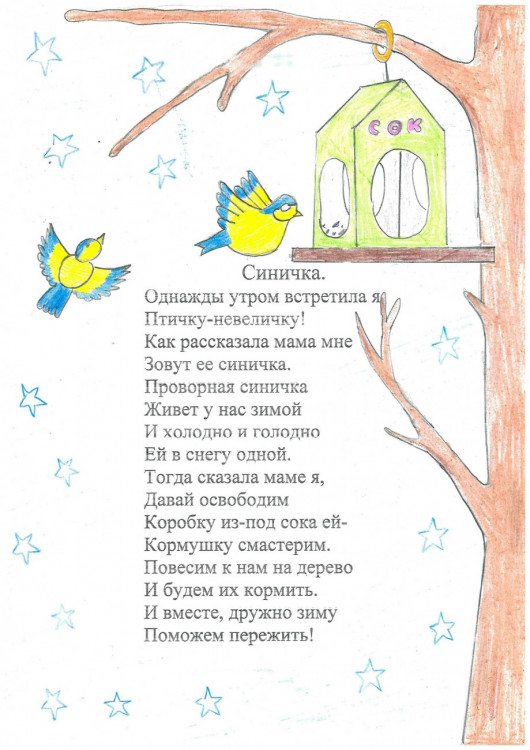 СОК
Синичка.
Однажды утром встретила я
Птичку-невеличку!
Как рассказала мама мне
Зовут ее синичка.
Проворная синичка
Живет у нас зимой
И холодно и голодно
Ей в снегу одной.
Тогда сказала маме я,
Давай освободим
Коробку из-под сока ей-
Кормушку смастерим.
Повесим к нам на дерево
И будем их кормить.
И вместе, дружно зиму
Поможем пережить!